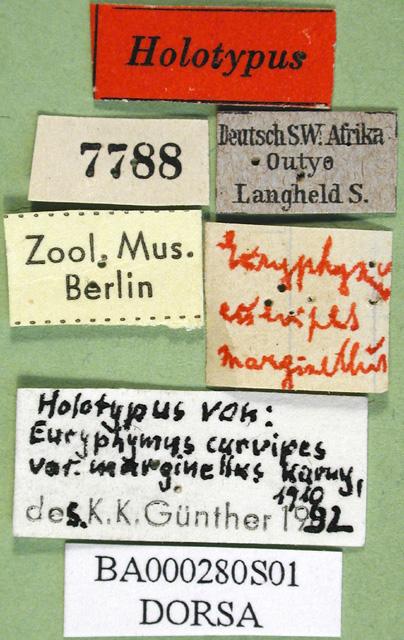 Holotypus
7788
Deutsch S.W. Afrika
Outyo
Langheld S.
Zool. Mus.
Berlin
Euryphymus
curvipes
marginellus
Holotypus von:
Euryphymus curvipes
var. marginellus Karny,
1910
des. K.K. Günther 1992
BA000280S01
DORSA